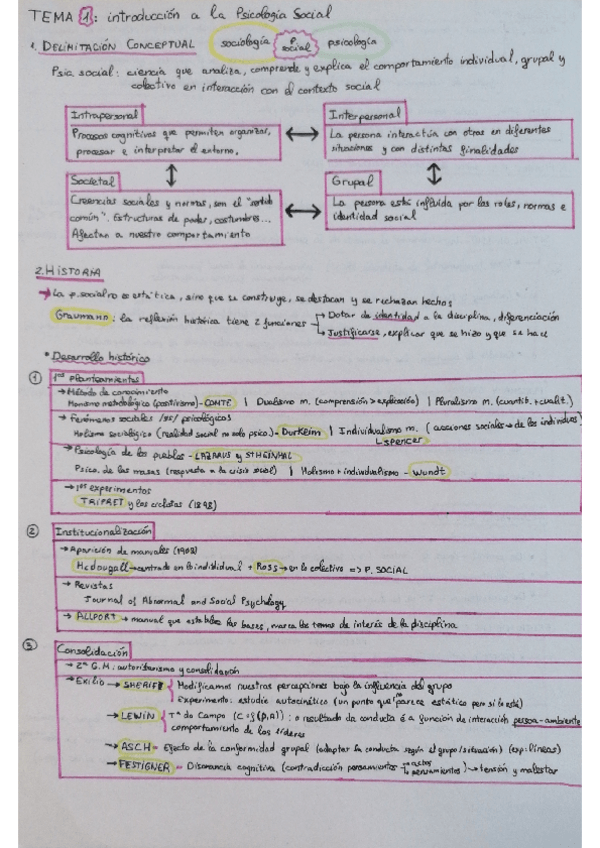 TEMA 1: introducción a la Psicología Social
1. DELIMITACIÓN CONCEPTUAL sociología P. social psicología
Psic. social: ciencia que analiza, comprende y explica el comportamiento individual, grupal y
colectivo en interacción con el contexto social
Intrapersonal
Procesos cognitivos que permiten organizar,
procesar e interpretar el entorno.
Interpersonal
La persona interactúa con otras en diferentes
situaciones y con distintas finalidades
Societal
Creencias sociales y normas, son el "sentido
común". Estructuras de poder, costumbres...
Afectan a nuestro comportamiento
Grupal
La persona está influida por los roles, normas e
identidad social
2. HISTORIA
→ La p. social no es estática, sino que se construye, se destacan y se rechazan hechos
Graumann: la reflexión histórica tiene 2 funciones → Dotar de identidad a la disciplina, diferenciación
→ Justificarse, explicar que se hizo y que se hace
* Desarrollo histórico
① 1ros Planteamientos
→ Método de conocimiento
Monismo metodológico (positivismo) - COMTE | Dualismo m. (comprensión > explicación) | Pluralismo m. (cuantit. + cualit.)
→ Fenómenos sociales /ss/ psicológicos
Holismo sociológico (realidad social no solo psico.) - Durkeim | Individualismo m. (acciones sociales → de los individuos)
↳ Spencer
→ Psicología de los pueblos - LAZARUS y STHEINHAL
Psico. de las masas (respuesta a la crisis social) | Holismo + individualismo - Wundt
→ 1ros experimentos
TRIPRET y los ciclistas (1898)
② Institucionalización
→ Aparición de manuales (1908)
McDougall → centrado en lo individual + Ross → en lo colectivo => P. SOCIAL
→ Revistas
Journal of Abnormal and Social Psychology
→ ALLPORT → manual que establece las bases, marca los temas de interés de la disciplina
③ Consolidación
→ 2ª G.M: autoritarismo y consolidación
→ Exilio → SHERIFF Modificamos nuestras percepciones bajo la influencia del grupo
Experimento: estudio autocinético (un punto que parece estático pero si lo está)
→ LEWIN Tª de Campo (C = f(P,A)): o resultado da conducta é a función de interacción persoa-ambiente
comportamiento de los líderes
→ ASCH - Efecto de la conformidad grupal (adaptar la conducta según el grupo/situación) (exp: líneas)
→ FESTIGNER - Disonancia cognitiva (contradicción pensamientos → actos → pensamientos) → tensión y malestar